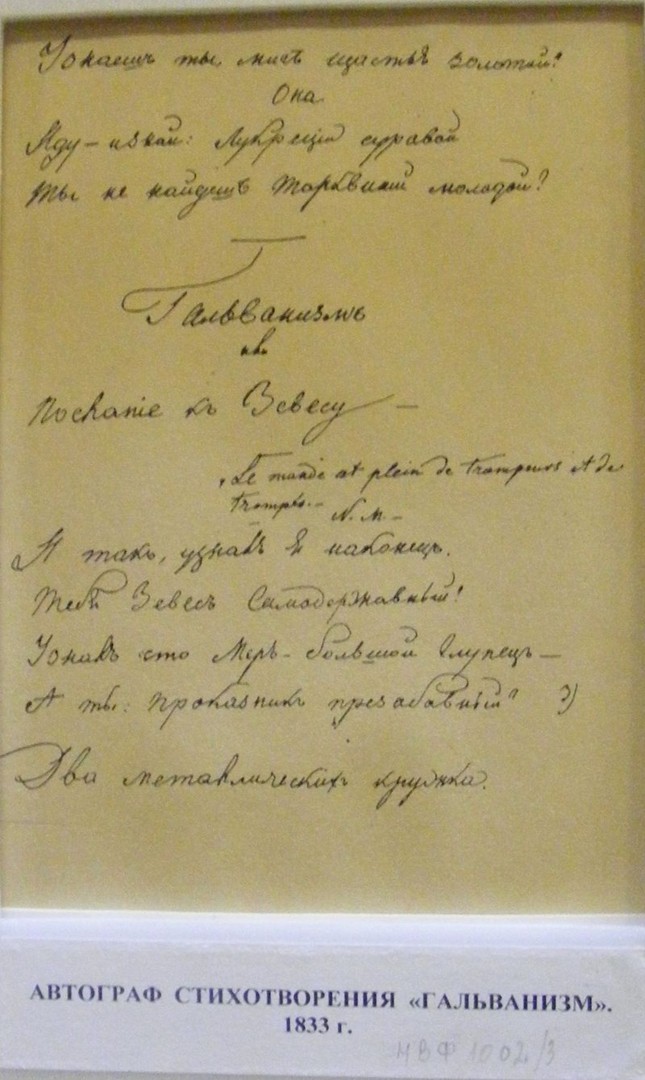 Узнаешь ты мигъ щастья золотой!
Она
Жду – искай: Лукреціи суровой
Ты не найдешь Тарквиній молодой?
Гальванизмъ
или
Посланіе къ Зевесу –
„Le monde est plein de trompeurs et de
trompés. –
N. N. –
И такъ, узналъ я наконецъ.
Тебя Зевесъ Самодержавный!
Узналъ что Міръ – большой глупецъ –
А ты: проказникъ презабавный? 3)
Два металлическихъ кружка.
АВТОГРАФ СТИХОТВОРЕНИЯ «ГАЛЬВАНИЗМ».
1833 г.
НВФ 1002/3